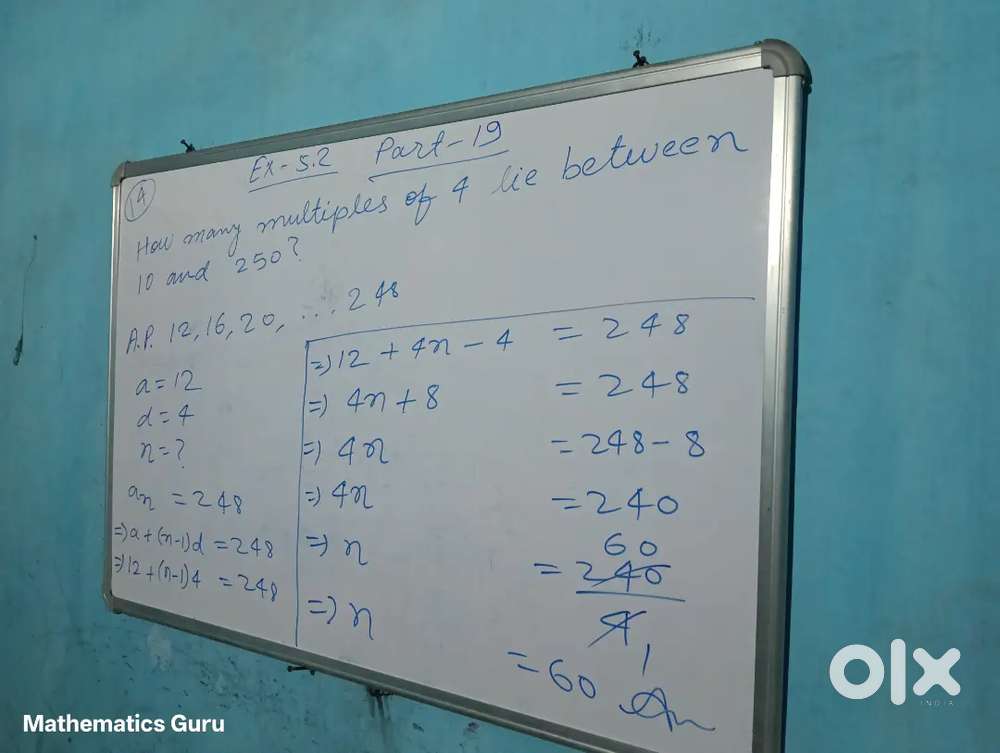 Ex-5.2 Part-19
(14)
How many multiples of 4 lie between
10 and 250?
A.P. 12, 16, 20, ... 248
a = 12
d = 4
n = ?
an = 248
=> a + (n-1)d = 248
=> 12 + (n-1)4 = 248
=> 12 + 4n - 4 = 248
=> 4n + 8 = 248
=> 4n = 248 - 8
=> 4n = 240
60
=> n = 240
4
1
=> n = 60 An
olx
INDIA
Mathematics Guru